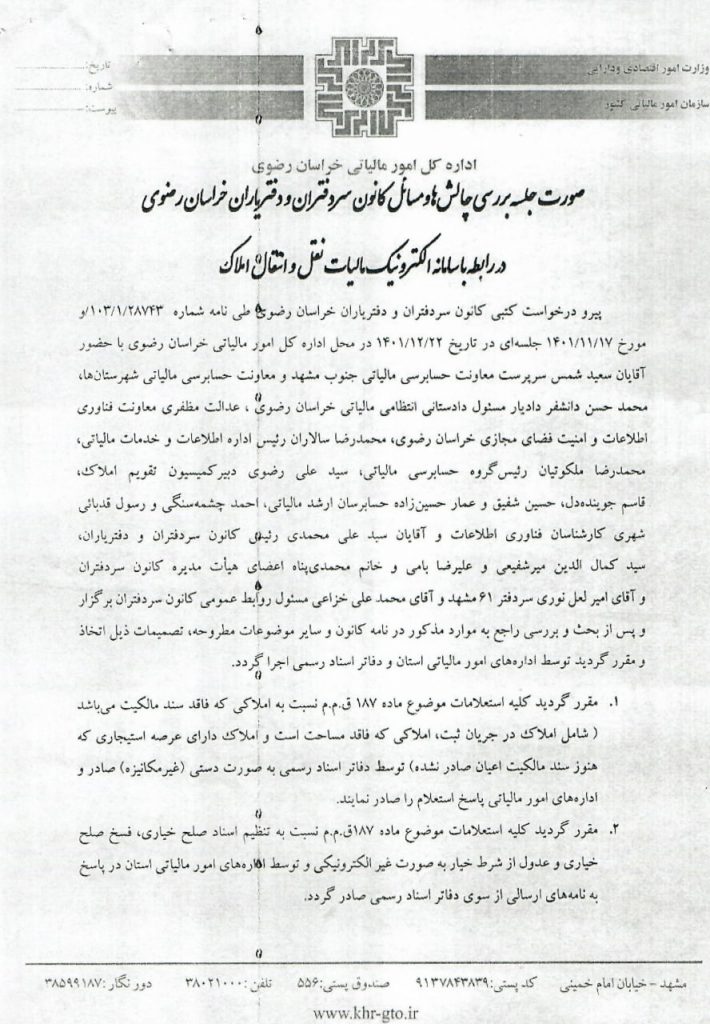 وزارت امور اقتصادی ودارایی
سازمان امور مالیاتی کشور
تاریخ:
شماره:
پیوست:
اداره کل امور مالیاتی خراسان رضوی
صورت جلسه بررسی چالش ها و مسائل کانون سردفتران و دفتریاران خراسان رضوی
در رابطه با سامانه الکترونیک مالیات نقل و انتقال املاک
پیرو درخواست کتبی کانون سردفتران و دفتریاران خراسان رضوی طی نامه شماره ۱۰۳/۱/۲۸۷۴۳/و
مورخ ۱۴۰۱/۱۱/۱۷ جلسه‌ای در تاریخ ۱۴۰۱/۱۲/۲۲ در محل اداره کل امور مالیاتی خراسان رضوی با حضور
آقایان سعید شمس سرپرست معاونت حسابرسی مالیاتی جنوب مشهد و معاونت حسابرسی مالیاتی شهرستان‌ها،
محمد حسن دانشفر دادیار مسئول دادستانی انتظامی مالیاتی خراسان رضوی ، عدالت مظفری معاونت فناوری
اطلاعات و امنیت فضای مجازی خراسان رضوی، محمدرضا سالاران رئیس اداره اطلاعات و خدمات مالیاتی،
محمدرضا ملکوتیان رئیس‌گروه حسابرسی مالیاتی، سید علی رضوی دبیرکمیسیون تقویم املاک،
قاسم جوینده‌دل، حسین شفیق و عمار حسین‌زاده حسابرسان ارشد مالیاتی، احمد چشمه‌سنگی و رسول قدبائی
شهری کارشناسان فناوری اطلاعات و آقایان سید علی محمدی رئیس کانون سردفتران و دفتریاران،
سید کمال الدین میرشفیعی و علیرضا بامی و خانم محمدی‌پناه اعضای هیأت مدیره کانون سردفتران
و آقای امیر لعل نوری سردفتر ۶۱ مشهد و آقای محمد علی خزاعی مسئول روابط عمومی کانون سردفتران برگزار
و پس از بحث و بررسی راجع به موارد مذکور در نامه کانون و سایر موضوعات مطروحه، تصمیمات ذیل اتخاذ
و مقرر گردید توسط اداره‌های امور مالیاتی استان و دفاتر اسناد رسمی اجرا گردد.
۱. مقرر گردید کلیه استعلامات موضوع ماده ۱۸۷ ق.م.م نسبت به املاکی که فاقد سند مالکیت می‌باشد
( شامل املاک در جریان ثبت، املاکی که فاقد مساحت است و املاک دارای عرصه استیجاری که
هنوز سند مالکیت اعیان صادر نشده) توسط دفاتر اسناد رسمی به صورت دستی (غیرمکانیزه) صادر و
اداره‌های امور مالیاتی پاسخ استعلام را صادر نمایند.
۲. مقرر گردید کلیه استعلامات موضوع ماده ۱۸۷ق.م.م نسبت به تنظیم اسناد صلح خیاری، فسخ صلح
خیاری و عدول از شرط خیار به صورت غیر الکترونیکی و توسط اداره‌های امور مالیاتی استان در پاسخ
به نامه‌های ارسالی از سوی دفاتر اسناد رسمی صادر گردد.
مشهد - خیابان امام خمینی کد پستی: ۹۱۳۷۸۴۳۸۳۹ صندوق پستی: ۵۵۶ تلفن: ۳۸۰۲۱۰۰۰ دور نگار: ۳۸۵۹۹۱۸۷
www.khr-gto.ir